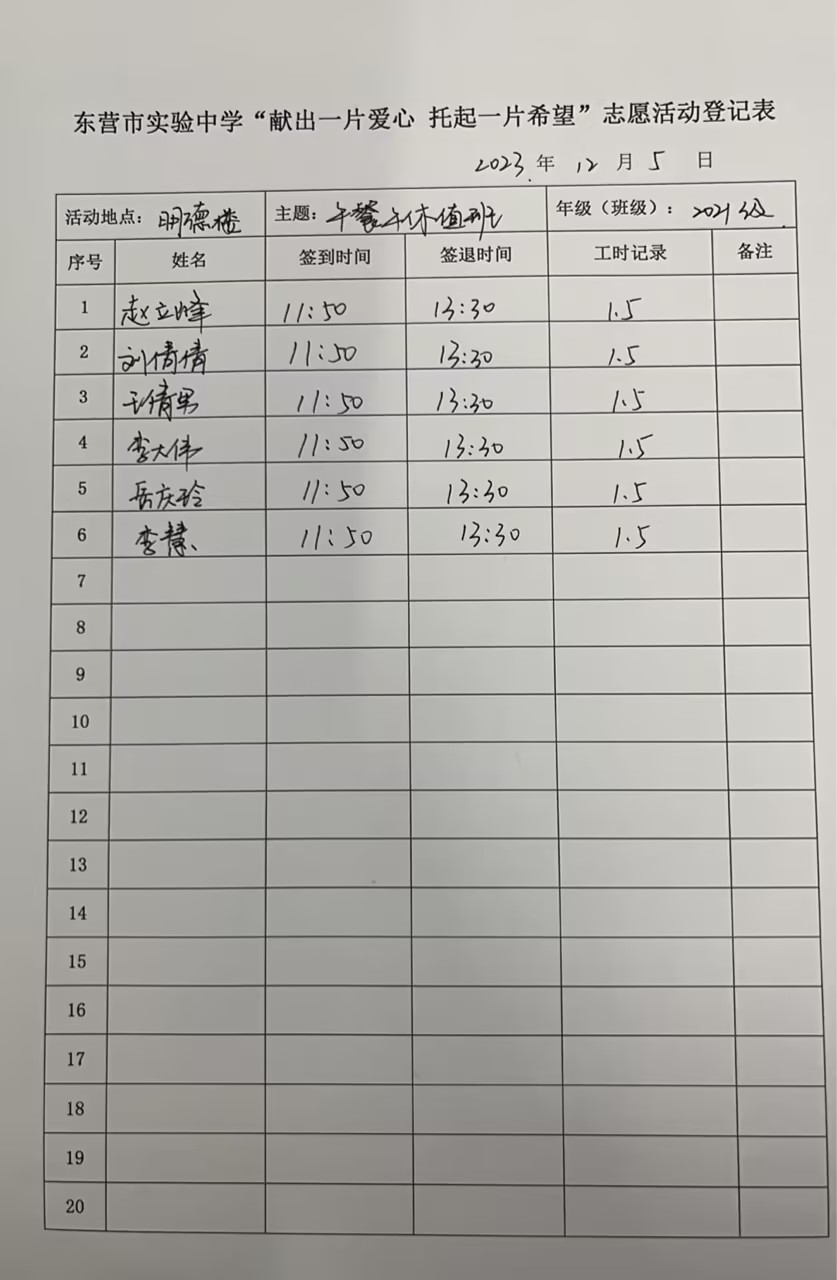 东营市实验中学“献出一片爱心 托起一片希望”志愿活动登记表
2023.年 12 月 5 日
活动地点：明德楼 主题：午餐午休值班 年级（班级）：2021级.
序号 姓名 签到时间 签退时间 工时记录 备注
1 赵立峰 11:50 13:30 1.5
2 刘倩倩 11:50 13:30 1.5
3 王倩男 11:50 13:30 1.5
4 李大伟 11:50 13:30 1.5
5 岳庆玲 11:50 13:30 1.5
6 李慧 11:50 13:30 1.5
7
8
9
10
11
12
13
14
15
16
17
18
19
20